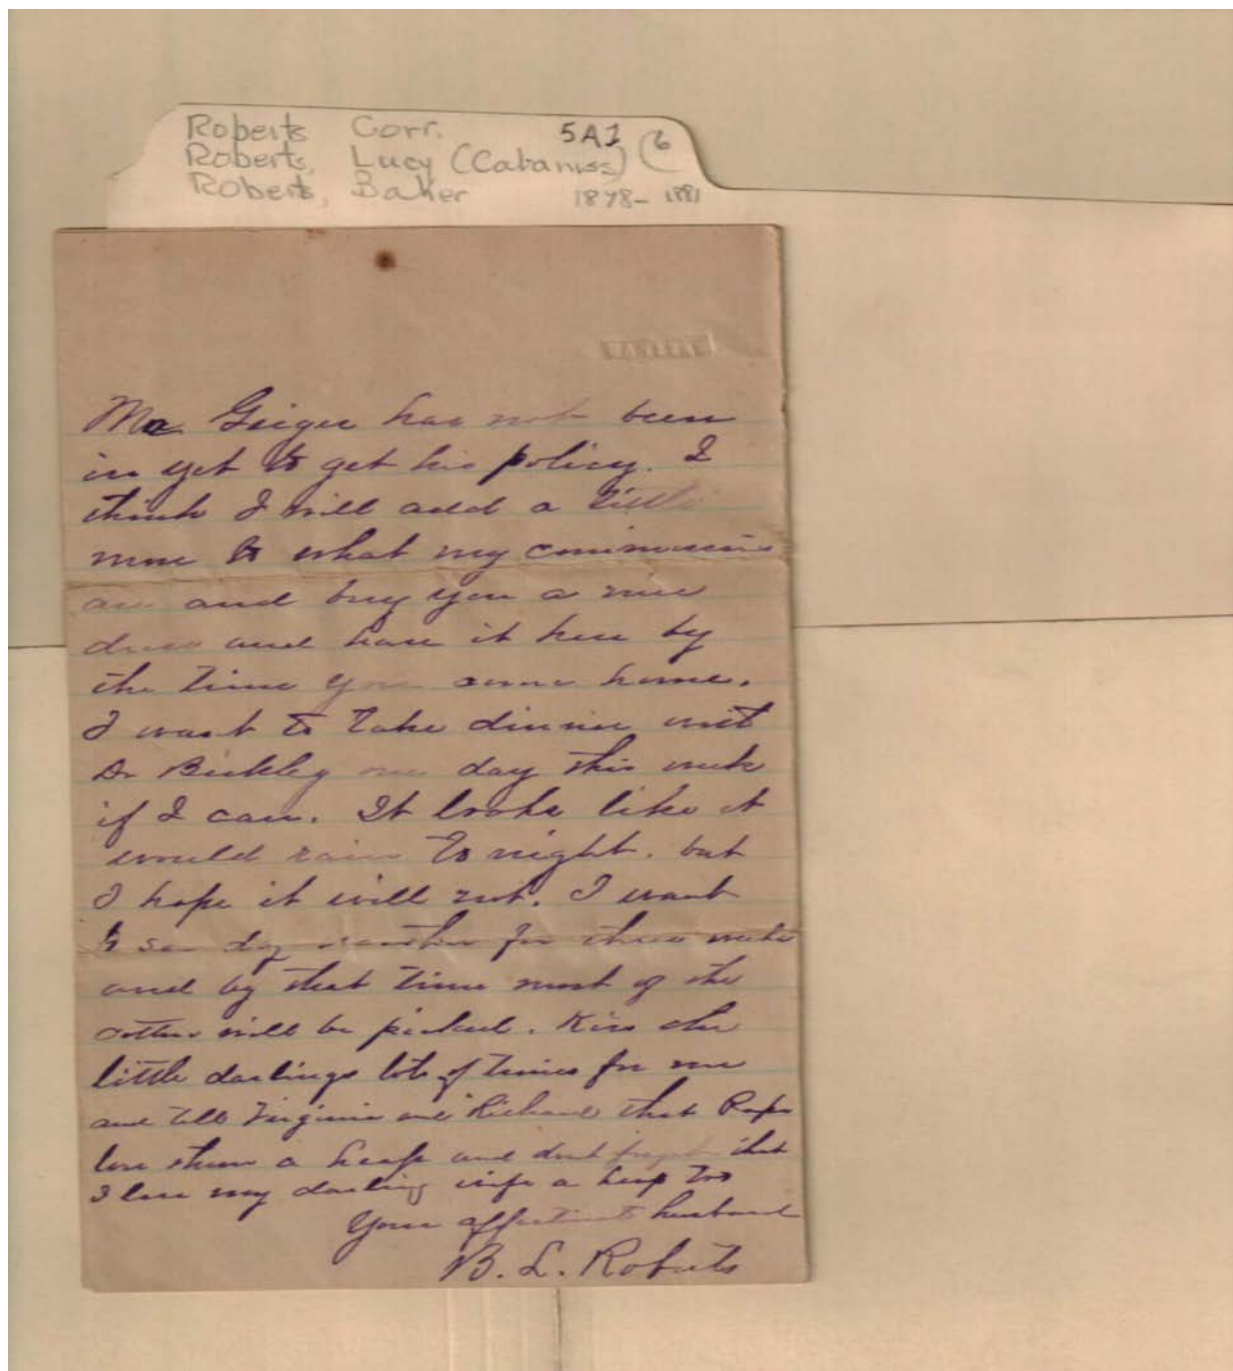 Roberts Corr. 5A1 (6
Roberts, Lucy (Cabaniss)
Roberts, Baker 1878- 1881
Mr Geiger has not been
in yet to get his policy. I
think I will add a little
more to what my commissions
are and buy you a nice
dress and have it here by
the time you come home.
I want to take dinner wit
Dr Beckley one day this week
if I can. It looks like it
would rain to night. but
I hope it will not. I want
to see dry weather for three weeks
and by that time most of the
cotton will be picked. Kiss the
little darlings lots of times for me
and tell Virginia and Richard that Papa
love them a heap and dont forget that
I love my darling wife a heap too
Your affectionate husband
B. L. Roberts